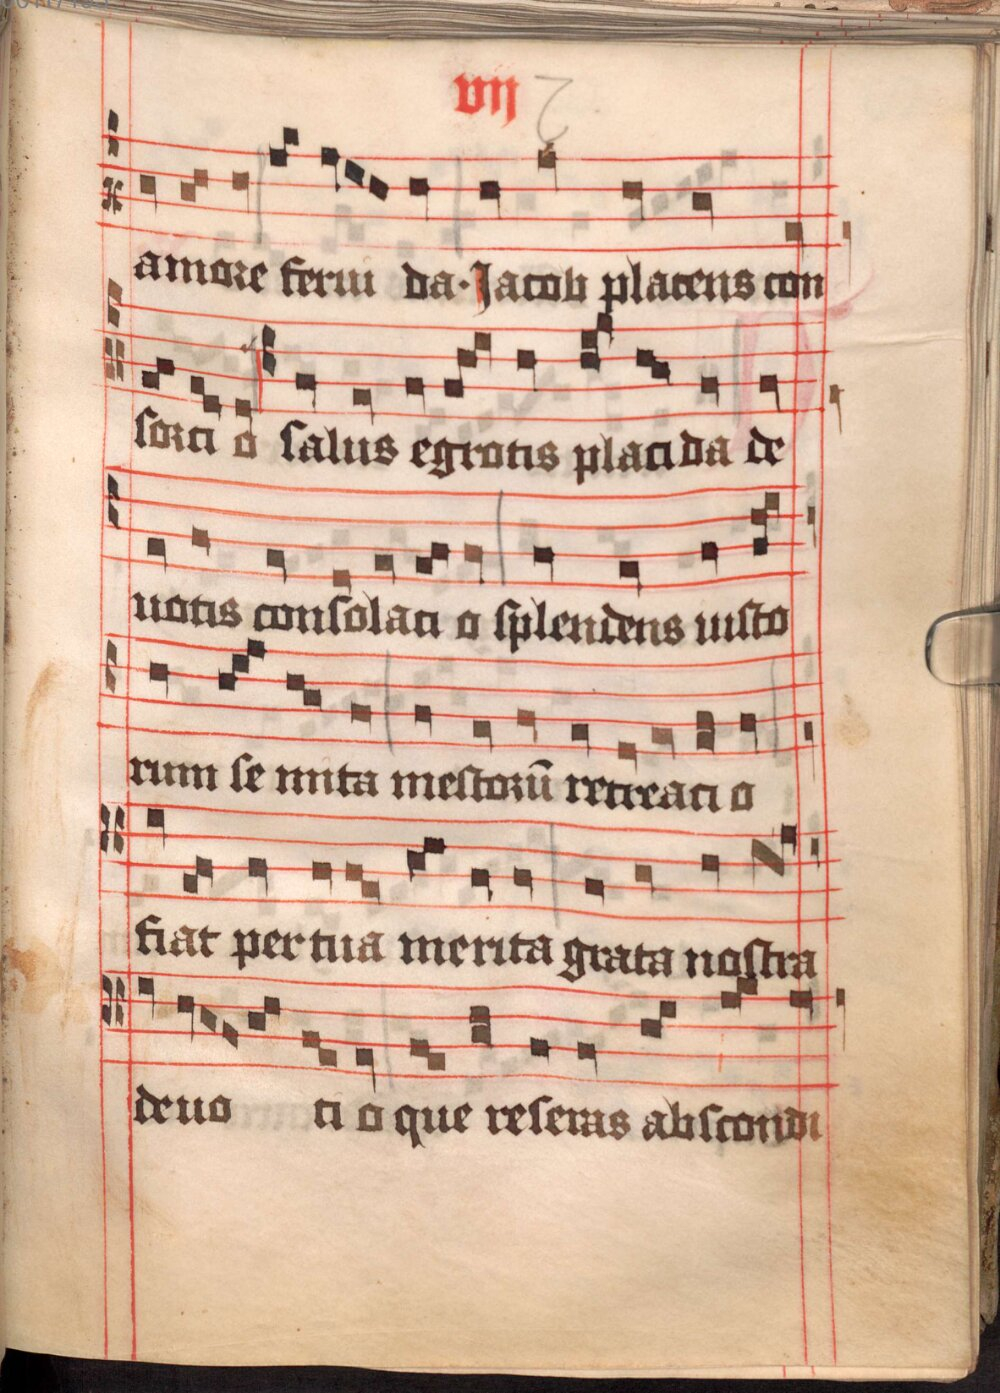 vij
amore ferui da · Jacob placens con
sorti o salus egrotis placida de
uotis consolati o splendens iusto
rum se mita mestorū recreati o
fiat per tua merita grata nostra
deuo ti o que reseras abscondi